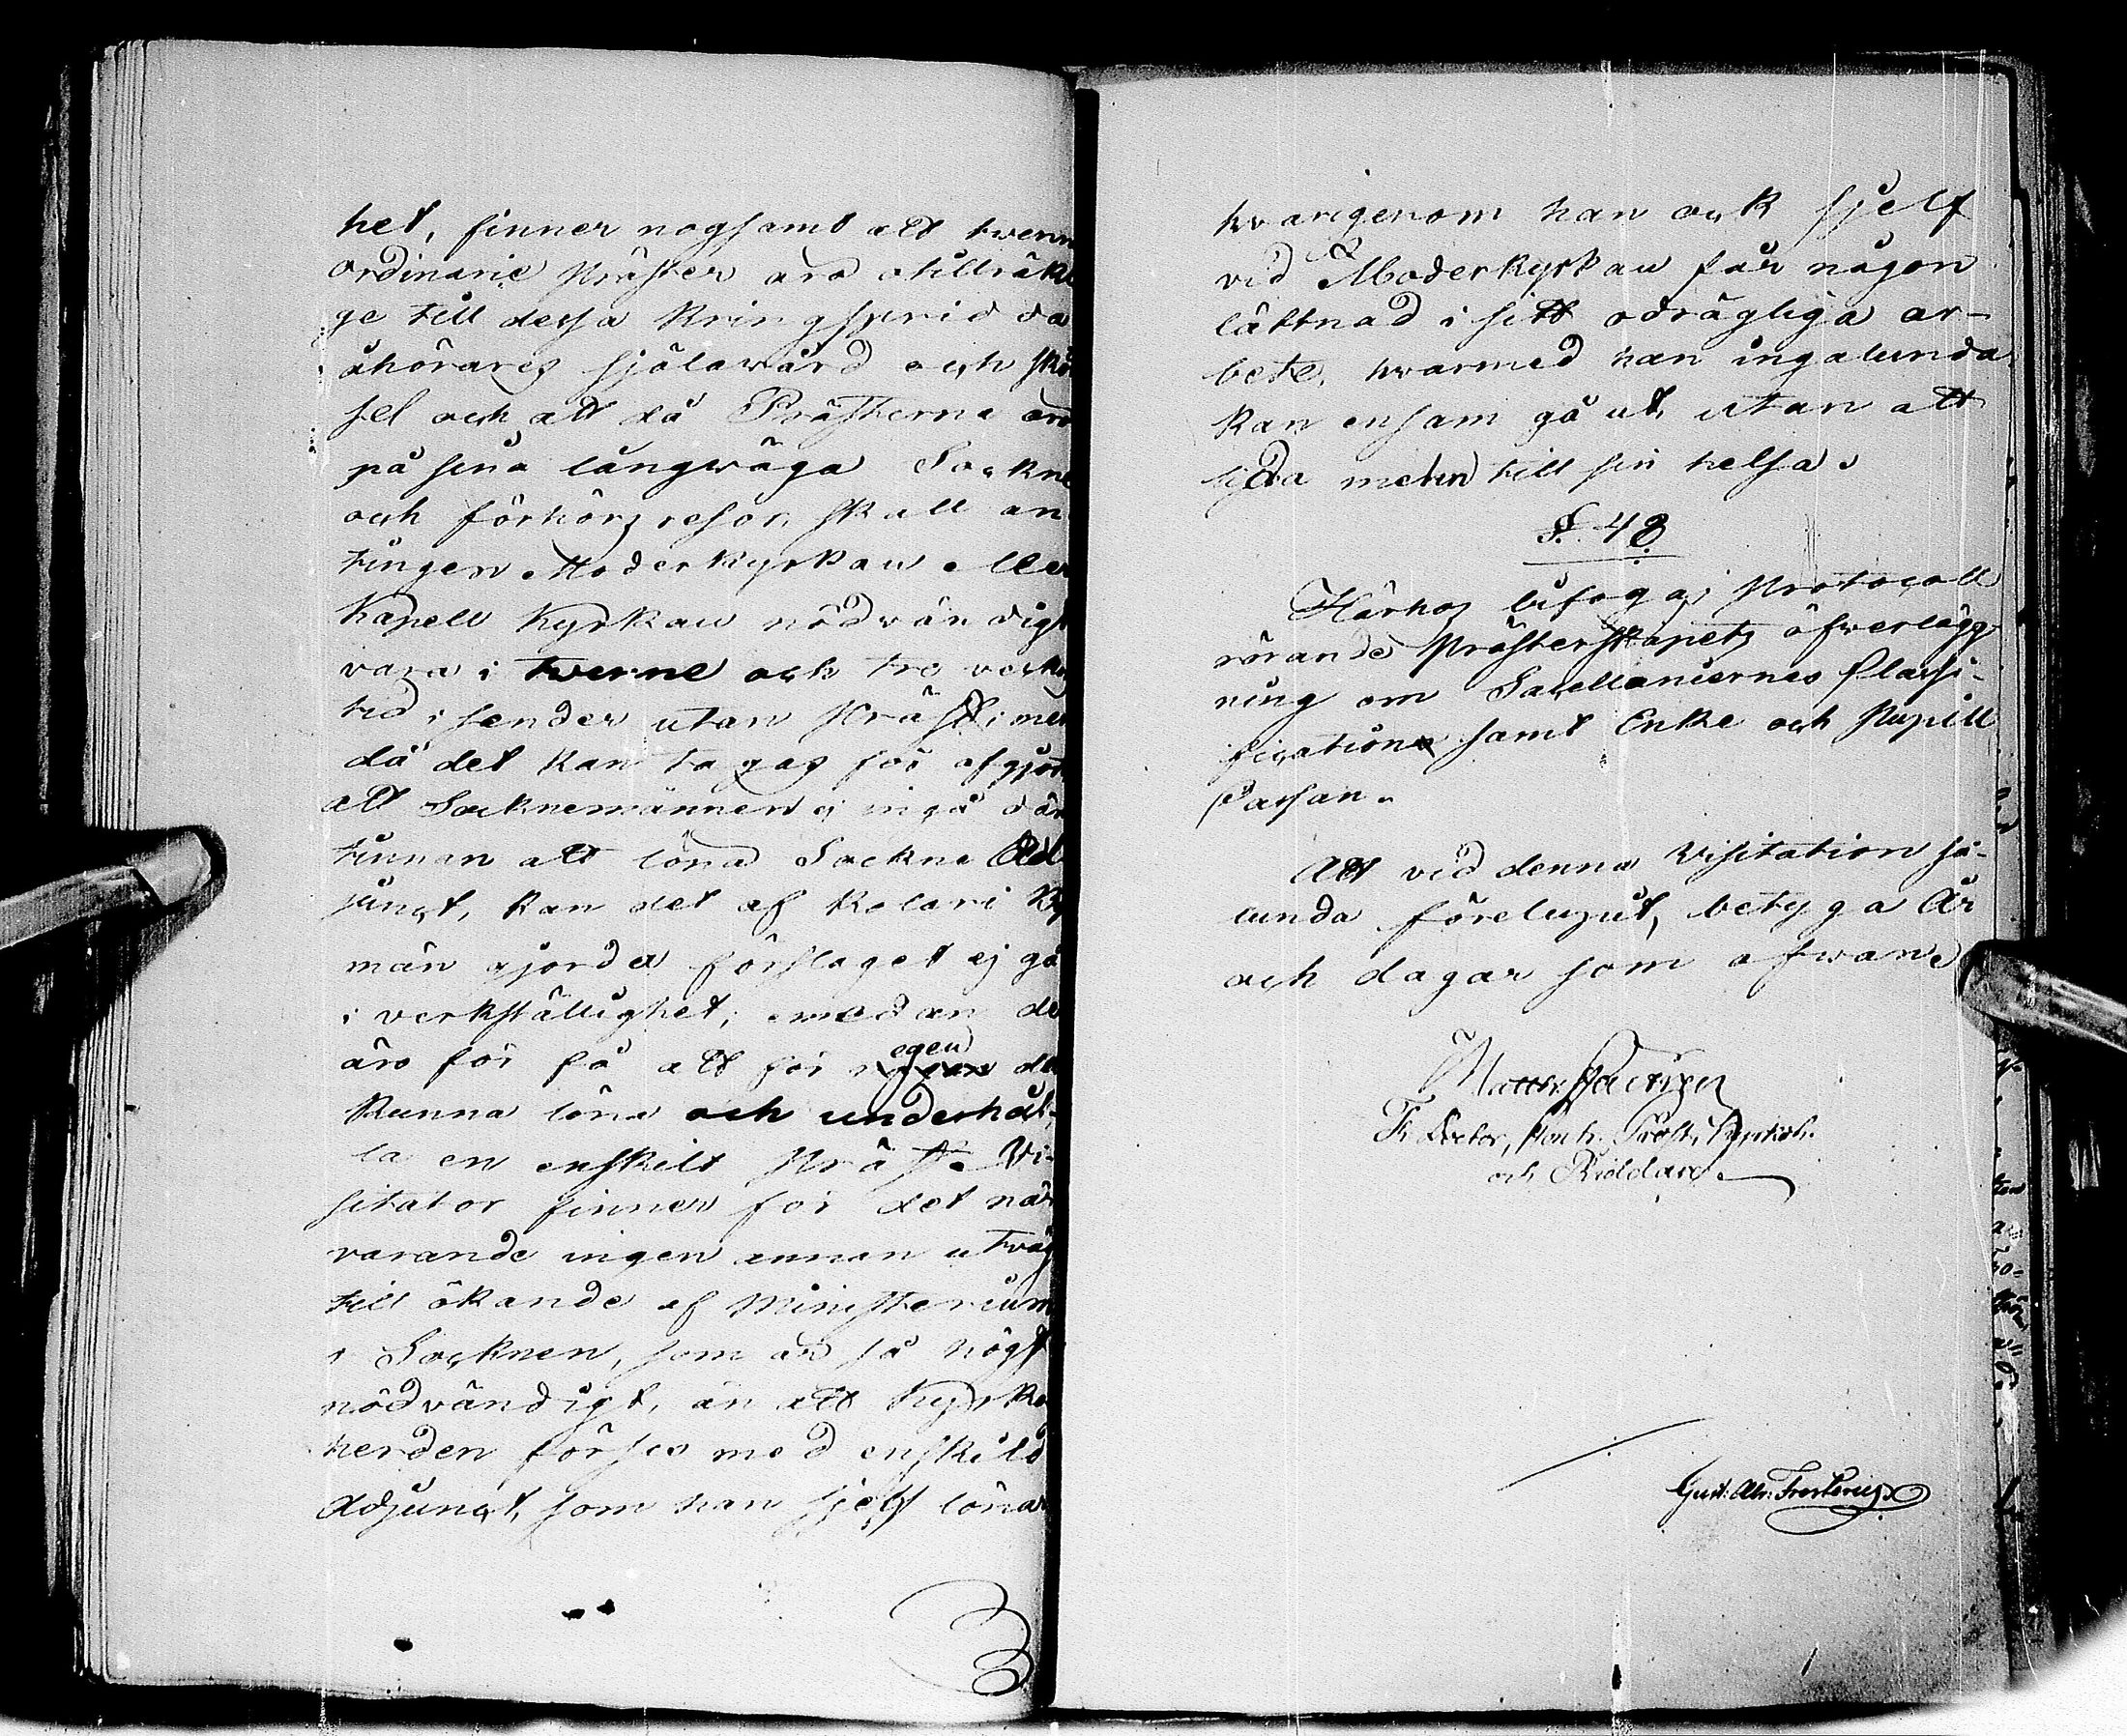 het, finner nogsamt att twenn
ordinarie Präster äro otillräkli
ge till dessa kringspridda
åhörares själavård och skö
sel och att då Prästerna äro
på sina långwäga Sockne
och förhörs resor, skall an
tingen Moderkyrkan eller
Kapell Kyrkan nödvändigt
vara i twenne och tre veckors
tid i sender utan Präst; men
då det kan tagas för afgjort
att Socknemännen ej ingå där
tinnan att löna Sockne Ad
junct, kan det af Kolari By
män gjorda förslaget ej gå
i verkställighet; emedan de
äro för få att för egen del
kunna löna och underhål-
la en enskilt Präst. Vi-
sitator finner för det när
varande ingen annan utväg
till ökande af Ministerium
i Socknen, som är så högst
nödvändigt, än att Kyrko
herden förses med enskild
Adjunct, som han sjelf lönar
hvarigenom han ock sjelf
vid Moderkyrkan får någon
lättnad i sitt odrägliga ar-
bete, hvarmed han ingalunda
kan ensam gå ut, utan att
lyda mehn till sin helsa.
§. 48.
Härhos bifogas Protocoll
rörande Prästerskapets öfverlägg
ning om Sacellaniernes Classi-
fication samt Enke och Pupill
Cassan.
Att vid denna Visitation så-
lunda förelupit, betyga År
och dagar som ofwan.
Matth.
Th. Doctor, Cont. Prost, Kyrkoh.
och Riddare.
Gust. Abr.